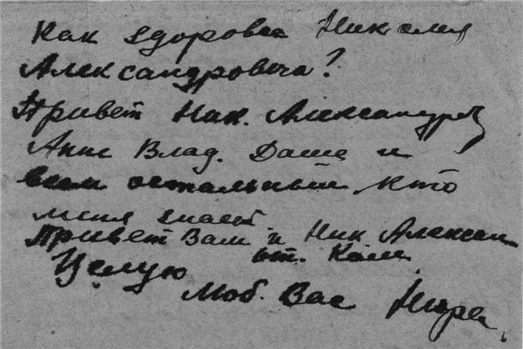 Как здоровье Николая
Александровича?
Привет Ник. Александров
Анне Влад. Даше и
всем остальным кто
меня знает.
Привет Вам и Ник Алексан
от. Коли
Целую
Люб. Вас Нюра.